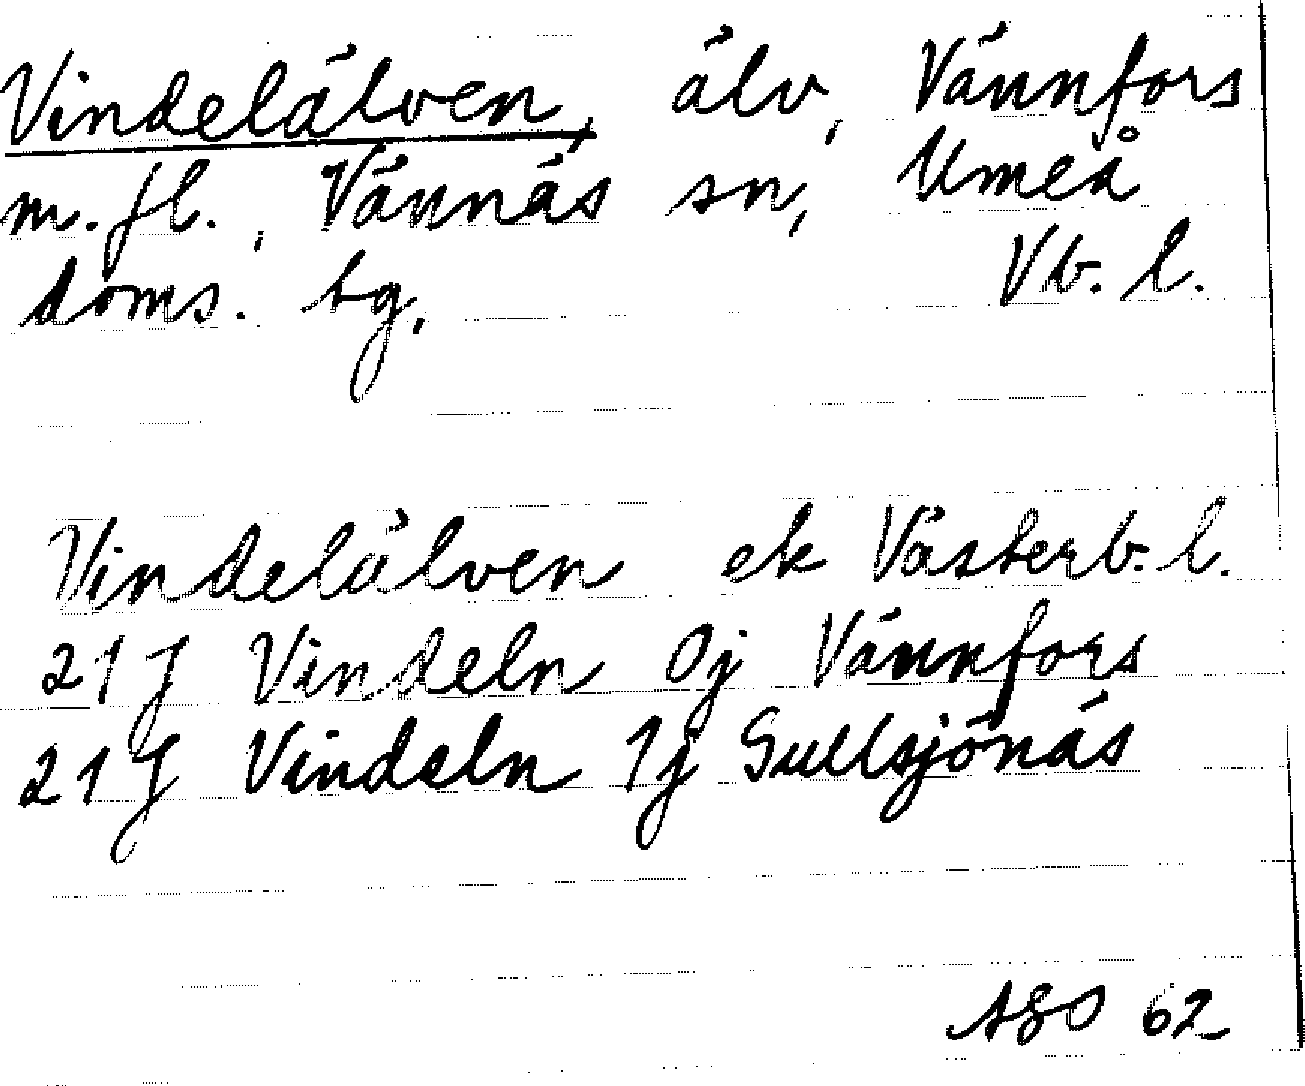 Vindelälven, älv, Vännfors
m. fl., Vännäs sn, Umeå
doms. bg. Vb. l.
Vindelälven ek Västerb. l.
21 J Vindeln 0j Vännfors
21 J Vindeln 1j Gullsjönäs
ASO 62